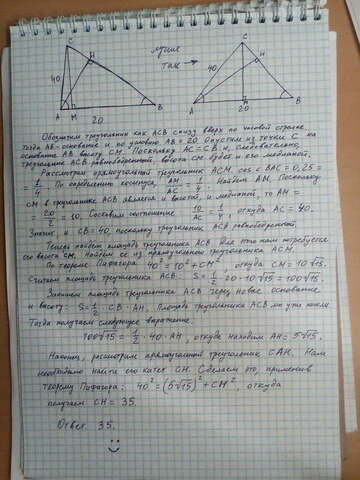 C
C
H
лучше
H
40
так →
40
A
M
B
A
M
B
20
20
Обозначим треугольник как ACB снизу вверх по часовой стрелке.
Тогда AB - основание и по условию AB = 20. Опустим из точки C на
основание AB высоту CM. Поскольку AC = CB и, следовательно,
треугольник ACB равнобедренный, высота CM будет и его медианой.
Рассмотрим прямоугольный треугольник ACM. cos ∠BAC = 0,25 =
= 1/4. По определению косинуса, AM/AC = 1/4. Найдем AM. Поскольку
CM в треугольнике ACB является и высотой, и медианой, то AM =
= 20/2 = 10. Составим соотношение 10/AC = 1/4, откуда AC = 40.
Значит, и CB = 40, поскольку треугольник ACB равнобедренный.
Теперь найдем площадь треугольника ACB. Для этого нам потребуется
его высота CM. Найдем ее из прямоугольного треугольника ACM.
По теореме Пифагора: 40² = 10² + CM², откуда CM = 10√15.
Считаем площадь треугольника ACB. S = 1/2 · 20 · 10√15 = 100√15
Запишем площадь треугольника ACB через новые основание
и высоту: S = 1/2 · CB · AH. Площадь треугольника ACB мы уже нашли
Тогда получаем следующее выражение:
100√15 = 1/2 · 40 · AH, откуда находим AH = 5√15.
Наконец, рассмотрим прямоугольный треугольник CAH. Нам
необходимо найти его катет CH. Сделаем это, применив
теорему Пифагора: 40² = (5√15)² + CM², откуда
получаем CH = 35.
Ответ. 35.